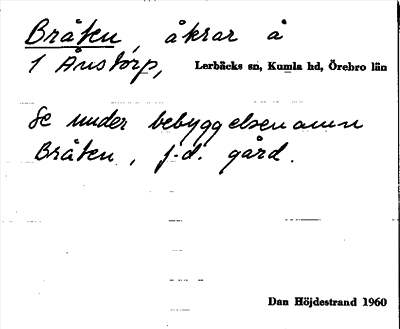 Bråten, åkrar å
1 Ånstorp, Lerbäcks sn, Kumla hd, Örebro län
Se under bebyggelsenamn
Bråten, f.d. gård.
Dan Höjdestrand 1960